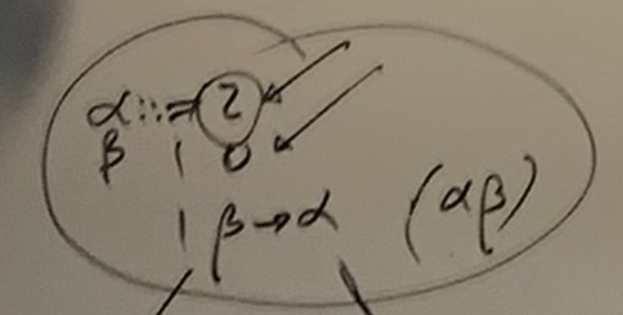 α ::= 2
β | 0
| β → α (α β)